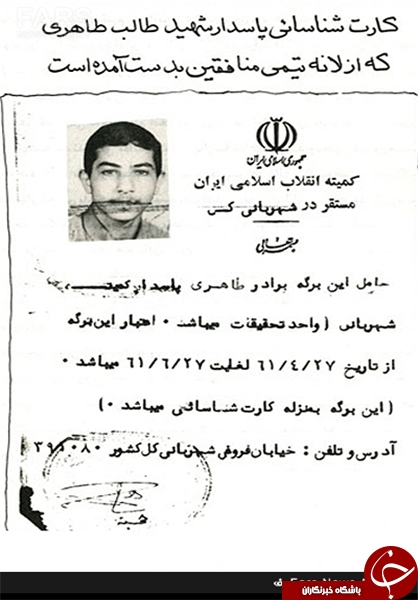 کارت شناسائی پاسدار شهید طالب طاهری
که از لانه تیمی منافقین بدست آمده است
جمهوری اسلامی ایران
کمیته انقلاب اسلامی ایران
مستقر در شهربانی کس
حامل این برگه برادر طاهری پاسدار کمیته
شهربانی ( واحد تحقیقات میباشد ۰ اعتبار این برگه
از تاریخ ۶۱/۴/۲۷ لغایت ۶۱/۶/۲۷ میباشد ۰
( این برگه بمنزله کارت شناسائی میباشد ۰ )
آدرس و تلفن : خیابان فروغی شهربانی کل کشور ۳۹۱۰۸۰
باشگاه خبرنگاران